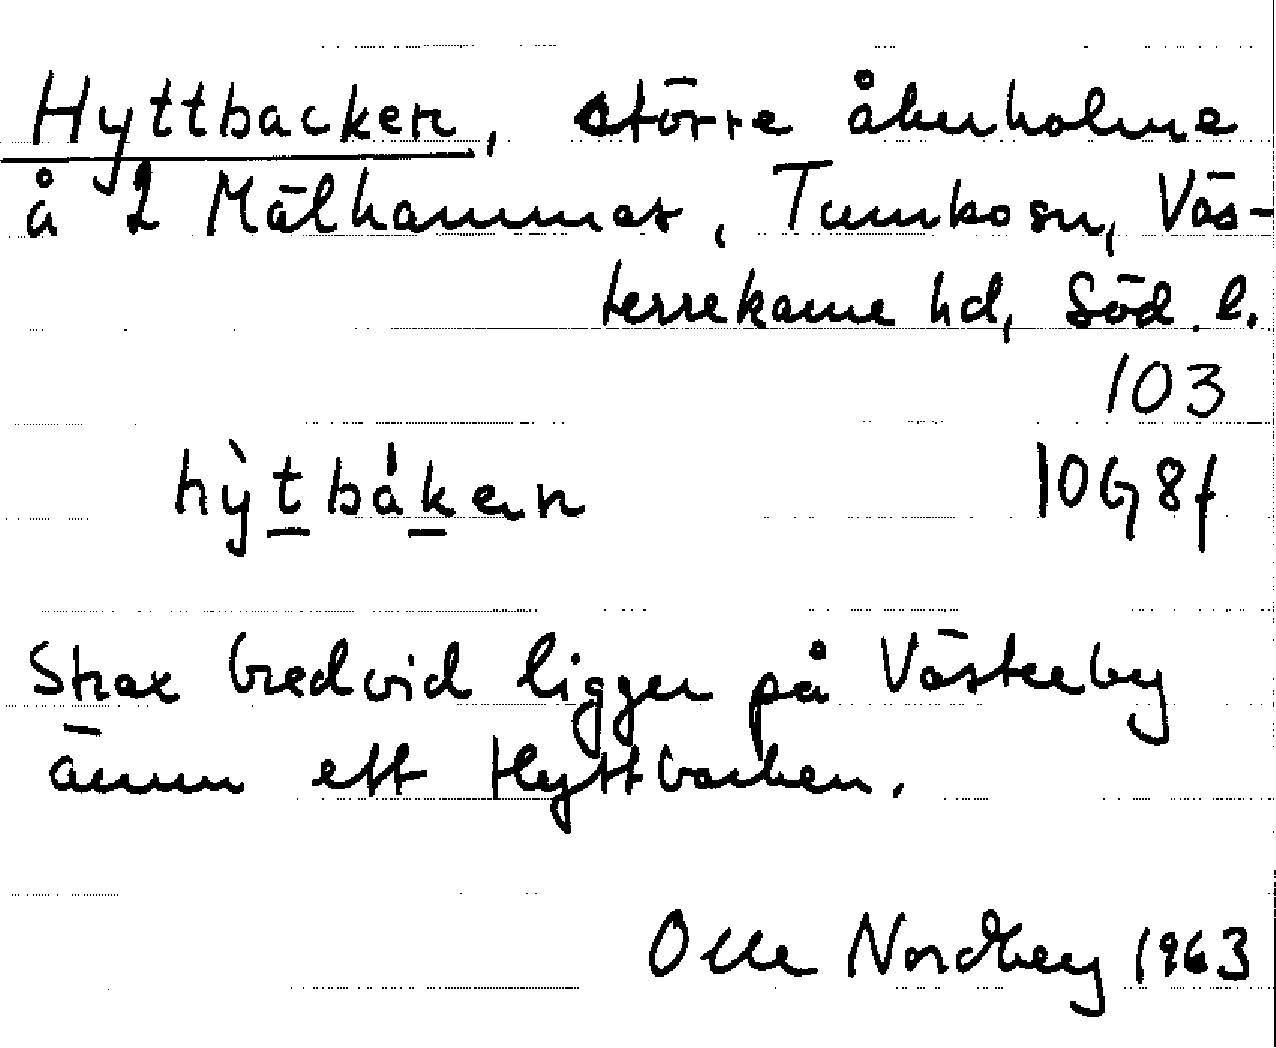 Hyttbacken, större åkerholme
å 2 Mälhammar, Tumbo sn, Väs-
terrekarne hd, Söd. l.
103
hỳtbáken 10G8f
Strax bredvid ligger på Västerby
ännu ett Hyttbacken.
Olle Nordberg 1963